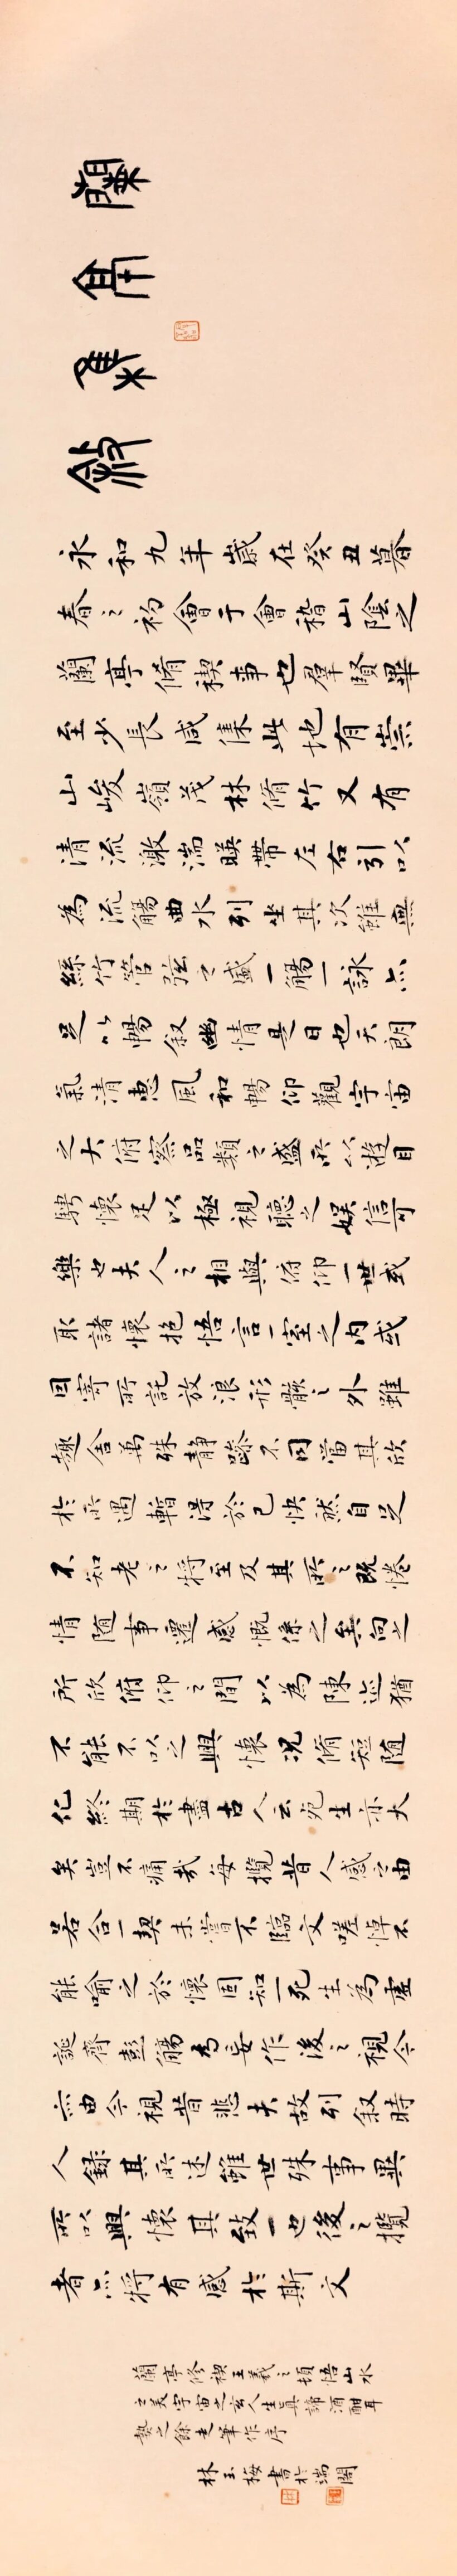 蘭亭集敘
永和九年歲在癸丑暮
春之初會于會稽山陰之
蘭亭脩禊事也羣賢畢
至少長咸集此地有崇
山峻嶺茂林脩竹又有
清流激湍暎帶左右引以
為流觴曲水列坐其次雖無
絲竹管弦之盛一觴一詠亦
足以暢叙幽情是日也天朗
氣清惠風和暢仰觀宇宙
之大俯察品類之盛所以遊目
騁懷足以極視聽之娛信可
樂也夫人之相與俯仰一世或
取諸懷抱悟言一室之內或
因寄所託放浪形骸之外雖
趣舍萬殊靜躁不同當其欣
於所遇暫得於己快然自足
不知老之將至及其所之既惓
情隨事遷感慨係之矣向之
所欣俯仰之間以為陳迹猶
不能不以之興懷況脩短隨
化終期於盡古人云死生亦大
矣豈不痛哉每攬昔人感之由
若合一契未嘗不臨文嗟悼不
能喻之於懷固知一死生為虛
誕齊彭觴為妄作後之視今
亦由今視昔悲夫故列叙時
人錄其所述雖世殊事異
所以興懷其致一也後之攬
者亦將有感於斯文
蘭亭修禊王羲之頓悟山水
之美宇宙之玄人生真諦酒酣耳
熱之餘走筆作序
林玉梅書於端閣